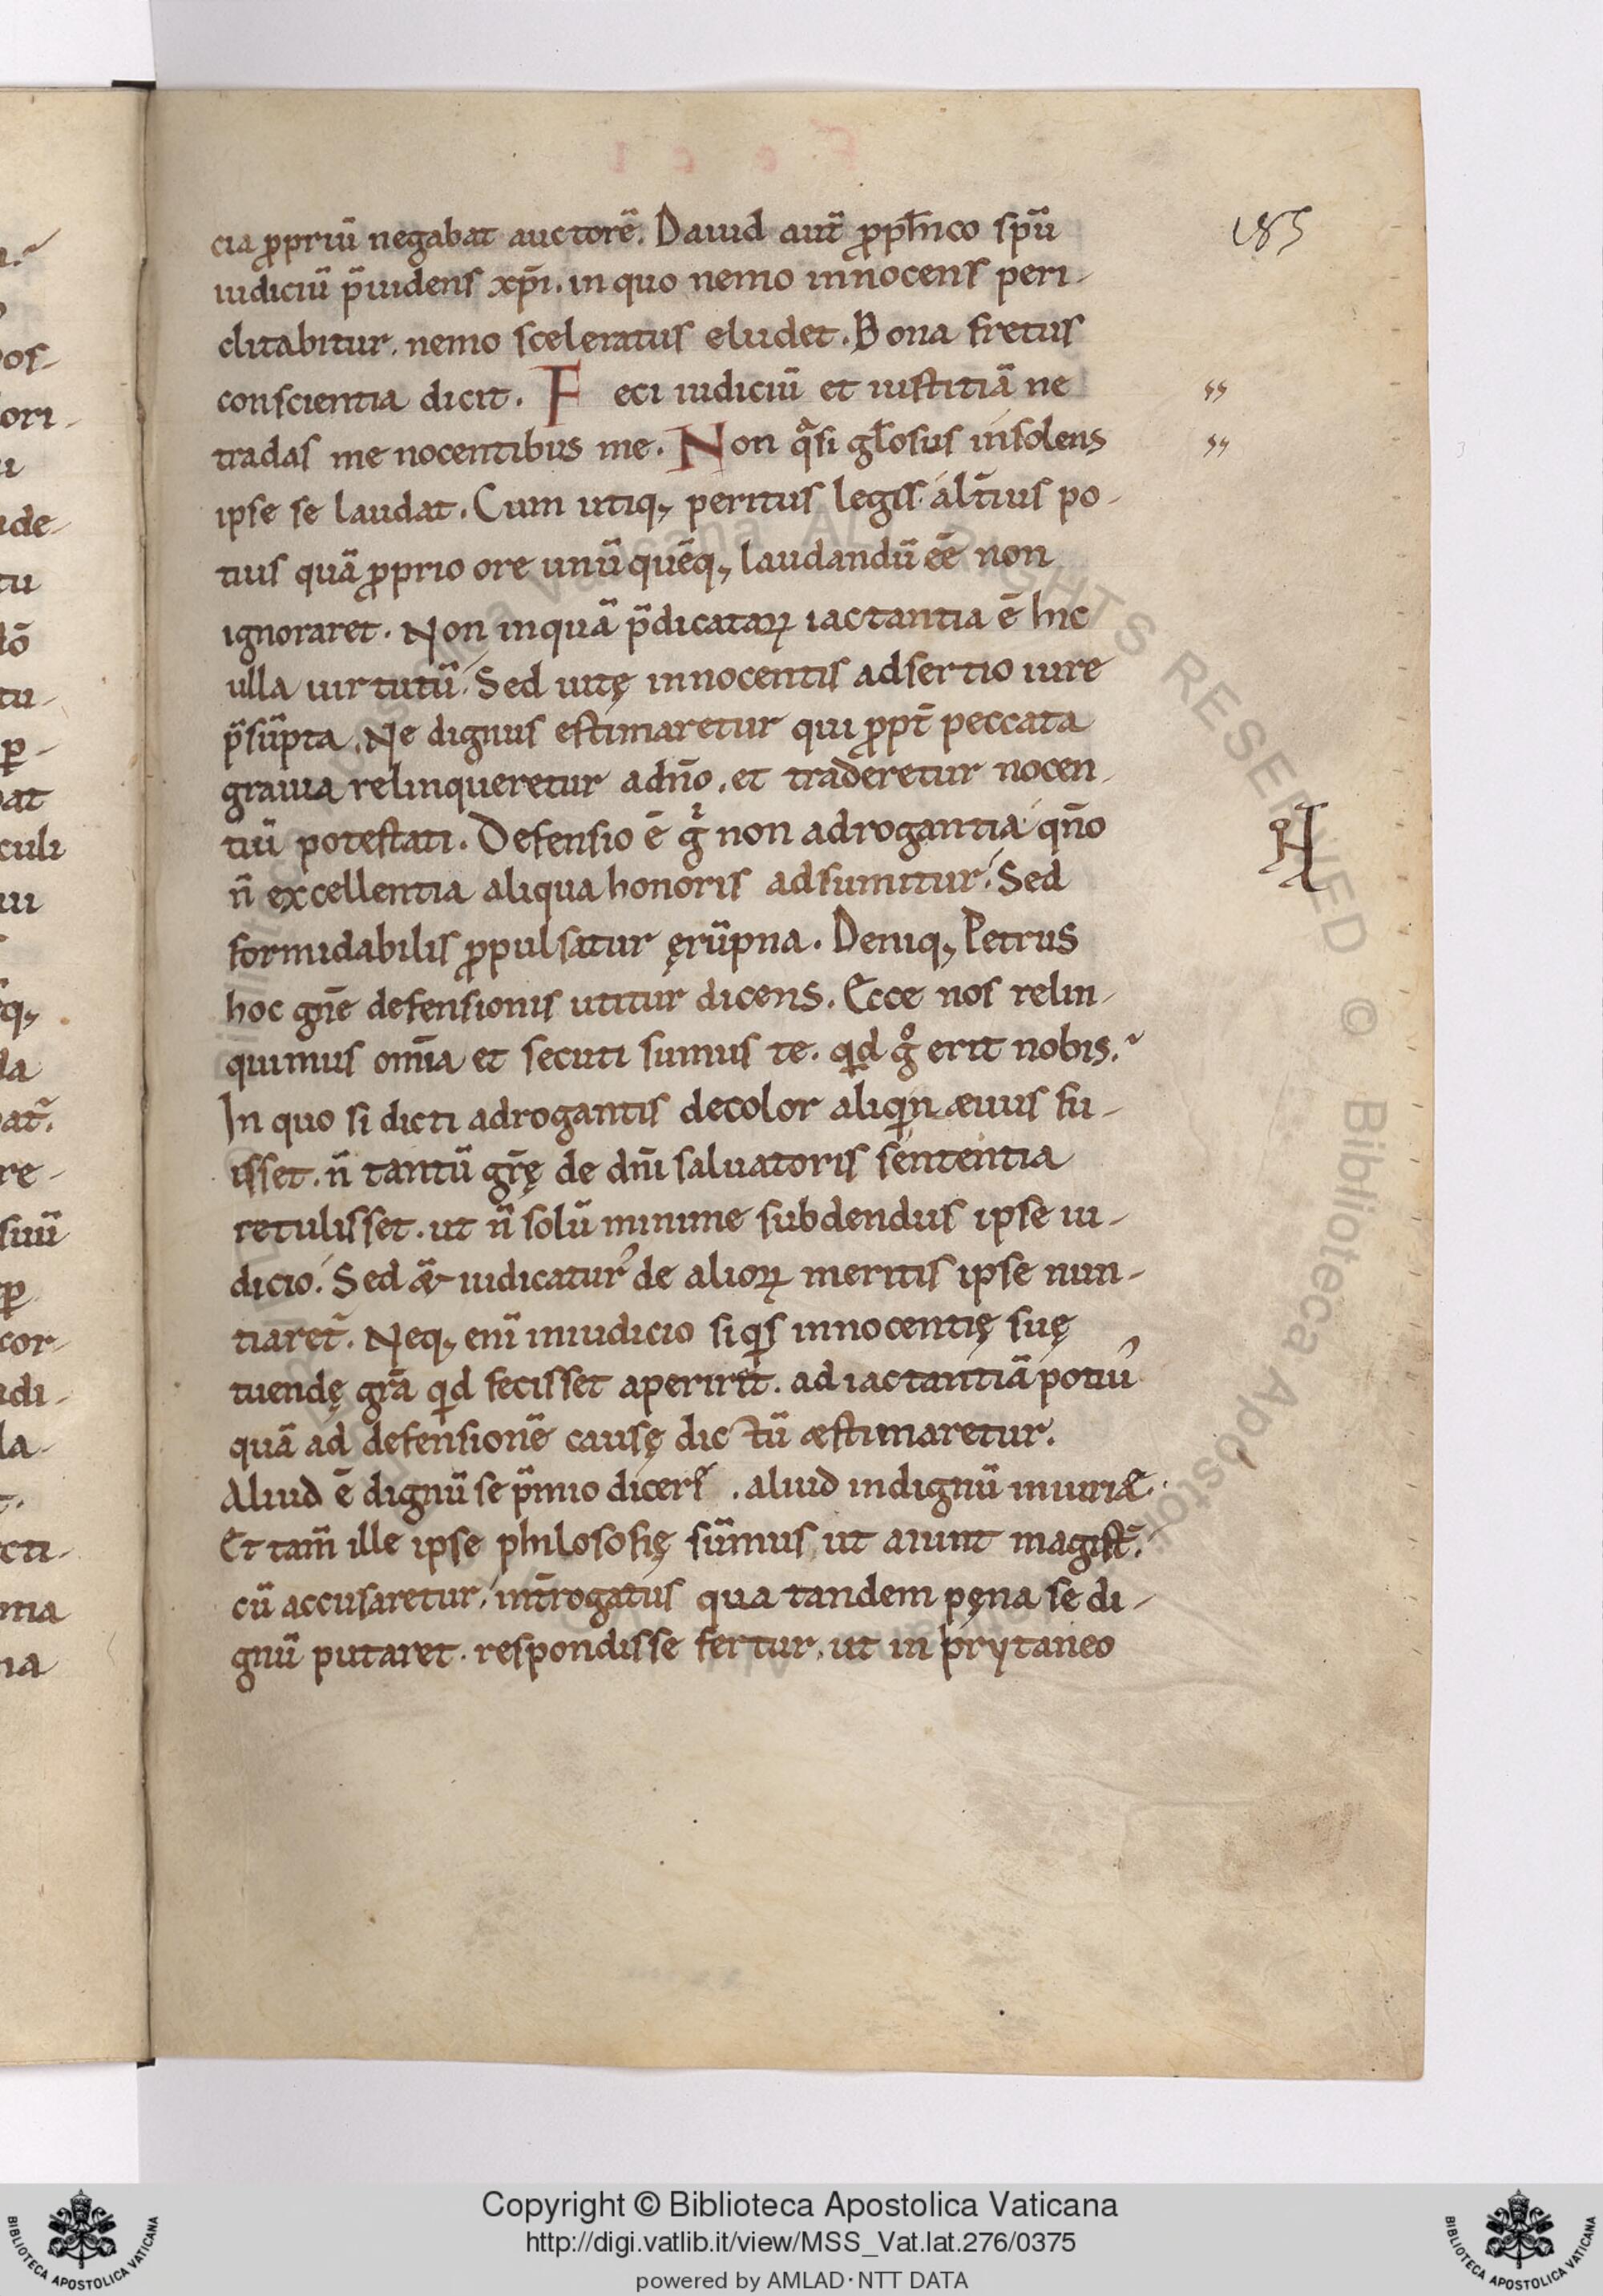 cia ꝓpriū negabat auctorē. Dauid aut̄ ꝓph̄ico spū
iudiciū p̄uidens xp̄i. in quo nemo innocens peri-
clitabitur. nemo sceleratus eludet. Bona fretus
conscientia dicit. Feci iudiciū et iustitiā ne
tradas me nocentibus me. Non qᵃsi gl̄osus insolens
ipse se laudat. Cum utiq; peritus legis alt̄ius po-
tius quā ꝓprio ore unū quēq; laudandū ēē non
ignoraret. Non inquā p̄dicataꝝ iactantia ē hic
ulla uirtutū. Sed uitę innocentis adsertio iure
p̄sūpta. Ne dignus estimaretur qui ꝓpt̄ peccata
grauia relinqueretur adn̄o. et traderetur nocen-
tiū potestati. Defensio ē gⁱ non adrogantia qn̄o
n̄ excellentia aliqua honoris adsumitur. Sed
formidabilis ꝓpulsatur ęrūpna. Deniq; Petrus
hoc gn̄e defensionis utitur dicens. Ecce nos relin-
quimus om̄ia et secuti sumus te. qd gͦ erit nobis.
In quo si dicti adrogantis decolor aliqn æuus fu-
isset. n̄ tantū gr̄ę de dn̄i saluatoris sententia
retulisset. ut n̄ solū minime subdendus ipse iu-
dicio. Sed & iudicatur' de alioꝝ meritis ipse nun-
tiaret̄. Neq; enī iniudicio siqs innocentię suę
tuendę gr̄a qd fecisset aperirēt. ad iactantiā potiu'
quā ad defensionē causę dictū æstimaretur.
Aliud ē dignū se p̄mio dicer̄. aliud indignū iniuriæ.
Et tam̄ ille ipse philosofię sūmus ut aiunt magist̄.
cū accusaretur. int̄rogatus qua tandem pęna se di-
gnū putaret. respondisse fertur. ut in prytaneo
185
Copyright © Biblioteca Apostolica Vaticana
http://digi.vatlib.it/view/MSS_Vat.lat.276/0375
powered by AMLAD·NTT DATA
BIBLIOTECA APOSTOLICA VATICANA
BIBLIOTECA APOSTOLICA VATICANA